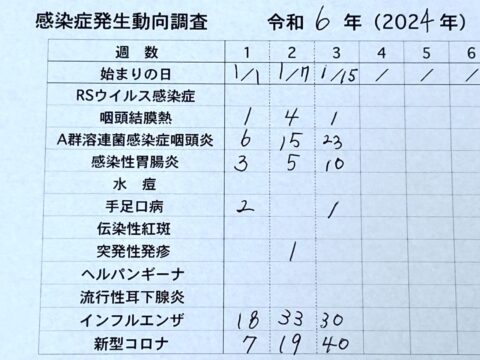 感染症発生動向調査 令和 6 年 (2024年)
週 数 1 2 3 4 5 6
始まりの日 1/1 1/7 1/15 / / /
RSウイルス感染症
咽頭結膜熱 1 4 1
A群溶連菌感染症咽頭炎 6 15 23
感染性胃腸炎 3 5 10
水 痘
手足口病 2 1
伝染性紅斑
突発性発疹 1
ヘルパンギーナ
流行性耳下腺炎
インフルエンザ 18 33 30
新型コロナ 7 19 40